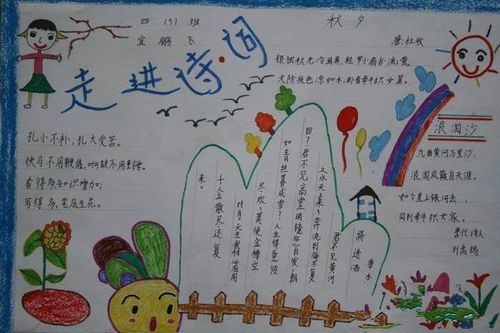 四（3）班
宜鹏飞
走进诗·词
秋夕
唐：杜牧
银烛秋光冷画屏，轻罗小扇扑流萤
天阶夜色凉如水，卧看牵织女星。
扎小不补，扎大受苦。
快马不用鞭催，响鼓不用重捶。
看得多知识增加，
写得多，笔底生花。
浪淘沙
九曲黄河万里沙，
浪淘风簸自天涯。
如今直上银河去，
同到牵牛织女家。
唐代诗人
刘禹锡
将进酒
李白
君不见黄河
之水天来，奔流到海不复
回？君不见高堂明镜悲白发，朝
如青丝暮成雪？人生得意须
尽欢，莫使金樽空
对月。天生我材必有用
千金散尽还复
来。